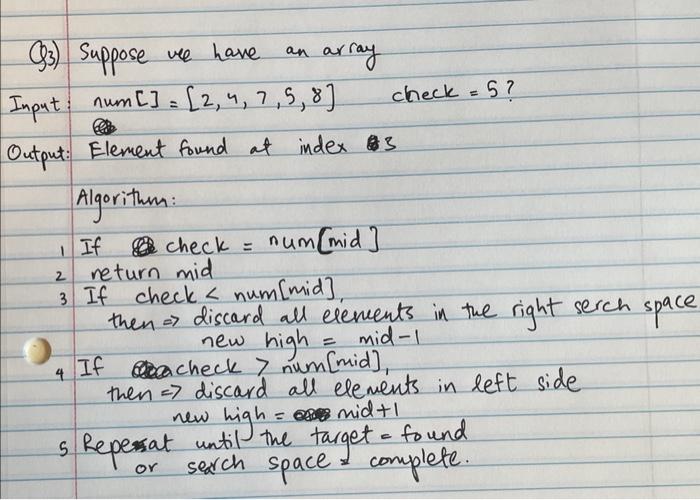 Q3) Suppose we have an array
Input: num[] = [2, 4, 7, 5, 8] check = 5?
Output: Element found at index 3
Algorithm:
1 If check = num[mid]
2 return mid
3 If check < num[mid],
then => discard all elements in the right serch space
new high = mid-1
4 If check > num[mid],
then => discard all elements in left side
new high = mid+1
5 Repeat until the target = found
or serch space = complete.